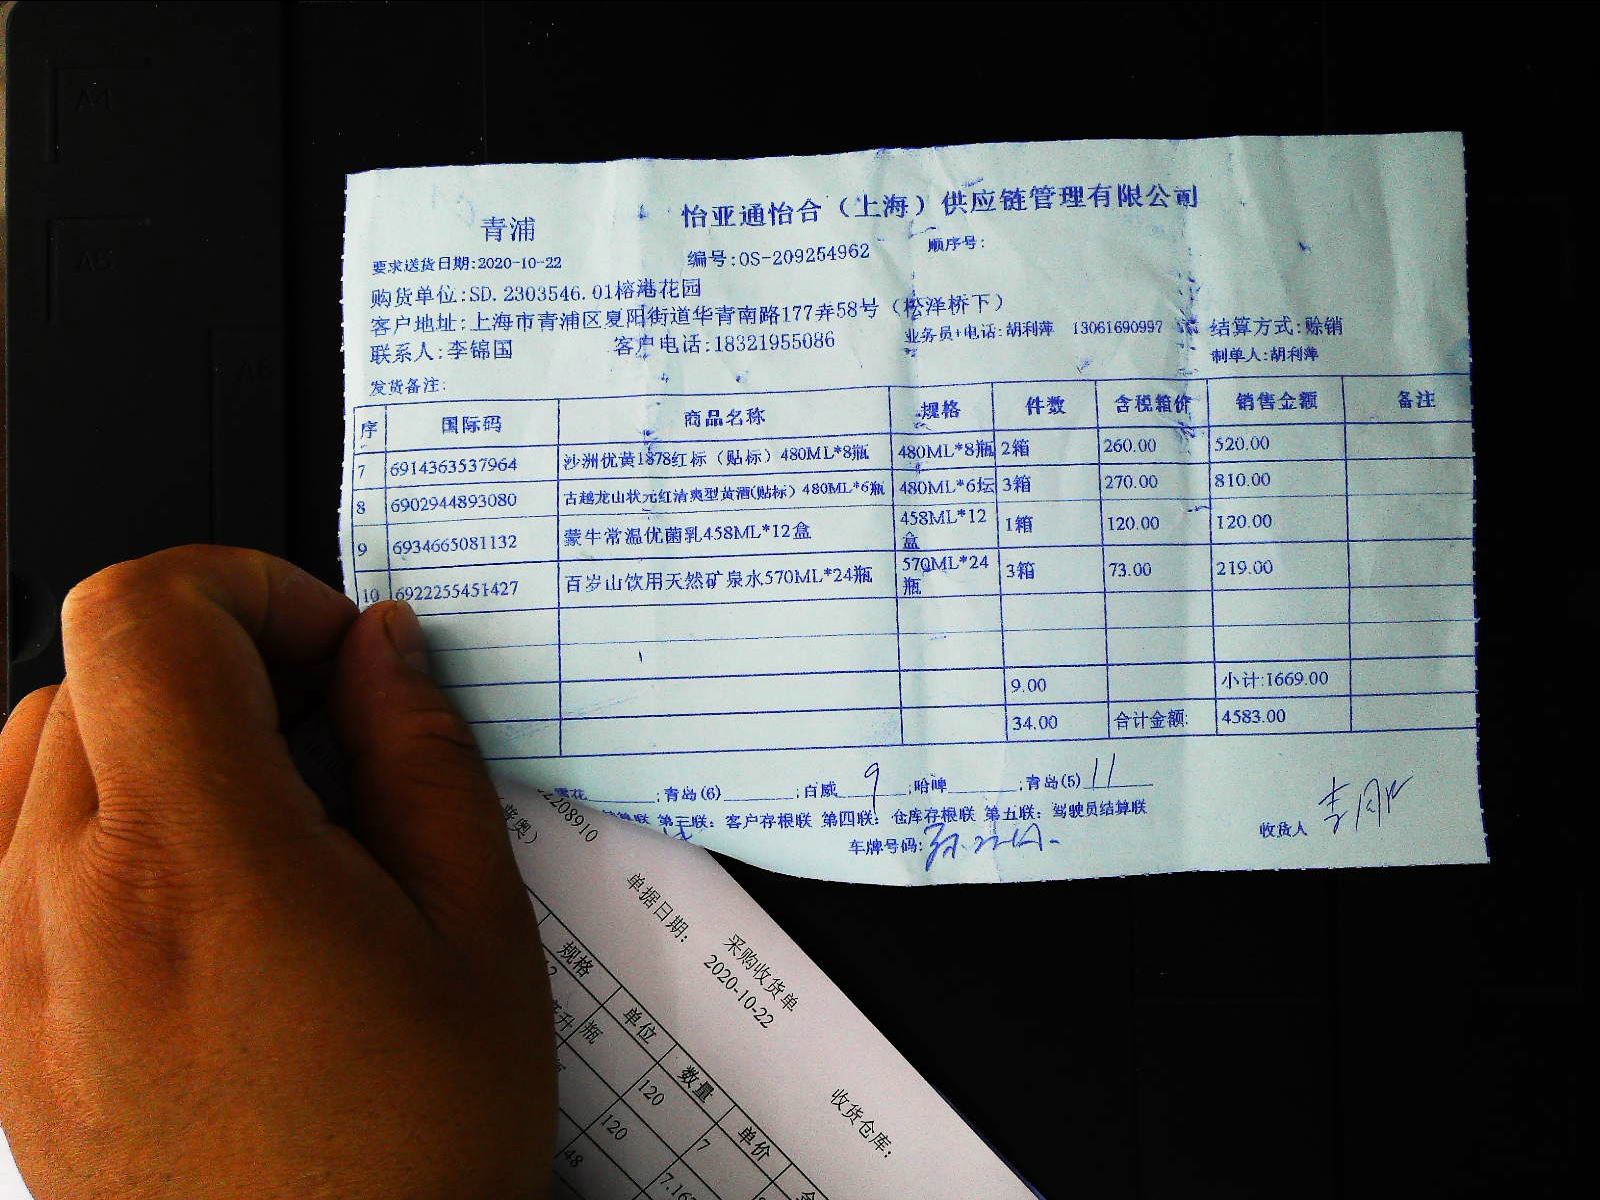 A4
A5
A6
青浦
怡亚通怡合（上海）供应链管理有限公司
要求送货日期:2020-10-22
编号:OS-209254962
顺序号:
购货单位:SD.2303546.01榕港花园
客户地址:上海市青浦区夏阳街道华青南路177弄58号（松泽桥下）
联系人:李锦国
客户电话:18321955086
业务员+电话:胡利萍 13061690997
结算方式:赊销
制单人:胡利萍
发货备注:
序 国际码 商品名称 规格 件数 含税箱价 销售金额 备注
7 6914363537964 沙洲优黄1878红标（贴标）480ML*8瓶 480ML*8瓶 2箱 260.00 520.00
8 6902944893080 古越龙山状元红清爽型黄酒(贴标）480ML*6瓶 480ML*6坛 3箱 270.00 810.00
9 6934665081132 蒙牛常温优菌乳458ML*12盒 458ML*12盒 1箱 120.00 120.00
10 6922255451427 百岁山饮用天然矿泉水570ML*24瓶 570ML*24瓶 3箱 73.00 219.00
9.00 小计:1669.00
34.00 合计金额: 4583.00
雪花______;青岛(6)______;百威 9 ;哈啤______;青岛(5) 11
算联 第三联：客户存根联 第四联：仓库存根联 第五联：驾驶员结算联
车牌号码:
收货人
2208910
采购收货单
单据日期: 2020-10-22
收货仓库:
规格 单位 数量 单价
瓶 120 7
120 7.16
48